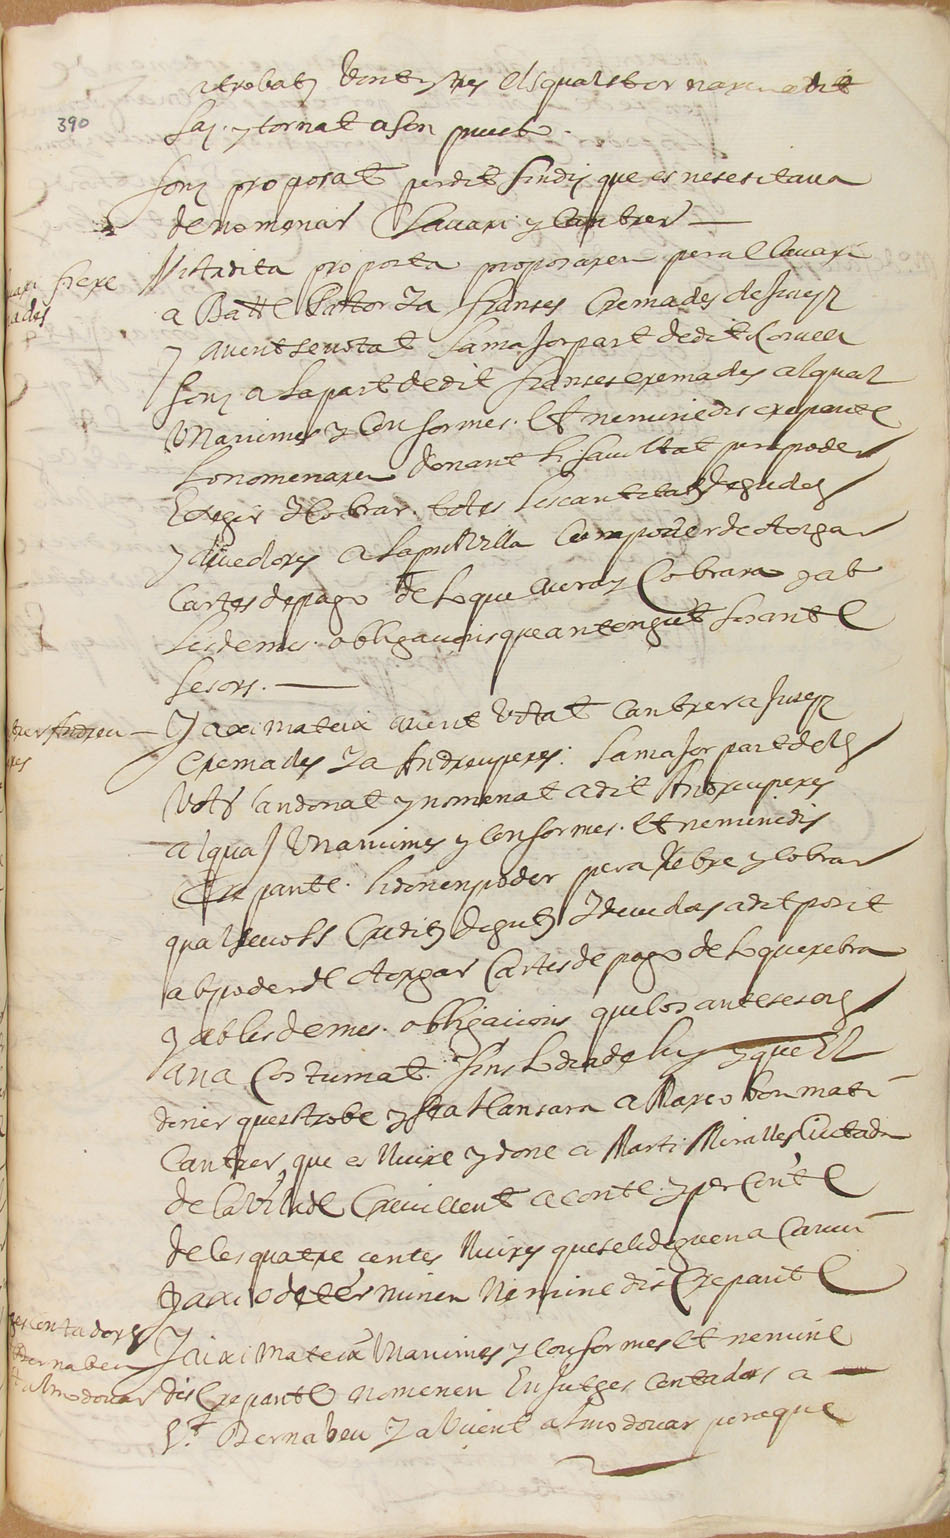 390
y trobats vint y tres els quals tornaren a dit
Saj. y tornat a son puesto.
fonch proposat per dit sindich que es nesesitava
de nomenar Clavari y Cantrer —
frexe
Vista dita proposta proposaren pera Clavari
a Batt Pastor Ja franses Cremades de Jusep
y avent se votat La major part de dit Consell
fonch a La part de dit franses cremades al qual
Unanimes y Conformes. Et nemine discrepante
Lo nomenaren donant li facultat pera poder
Exegir y Cobrar. totes Les cantitats degudes
y devedores a La pnt Villa Cum poder de Atorgar
Cartes de pago de Lo que aura y Cobrara y ab
Les demes. obligacions que an tengut Los ante
sesors. —
Andreu
Y axi mateix avent Votat Cantrer a Jusep
Cremades Ja Andreu peres. La major part dels
Vots an donat y nomenat a dit Andreu peres
al qual Unanimes y Conformes. Et nemine dis
Crepante. li donen poder pera Rebre y Cobrar
qualsevols Credits deguts y devedors a dit posit
ab poder de Atorgar Cartes de pago de Lo que rebra
y ab les demes. obligacions que los antesesors
an a Costumat. fins Lo dia de huy y que El
diner que es trobe y sta Llansara a Marco bonmati
Cantrer que es Lliure y done a Marti Miralles Ciutada
de la Vila de Crevillent a conte y per Conte
de les quatre centes lliures que se li deguen a Carui
Y axi o determinen Nemine discrepante
contadors
Bernabeu
Almodovar
Y axi mateix Unanimes y Conformes Et nemine
discrepante nomenen En Jutges Contadors a —
Vt Bernabeu Ja Vicent almodovar pera que